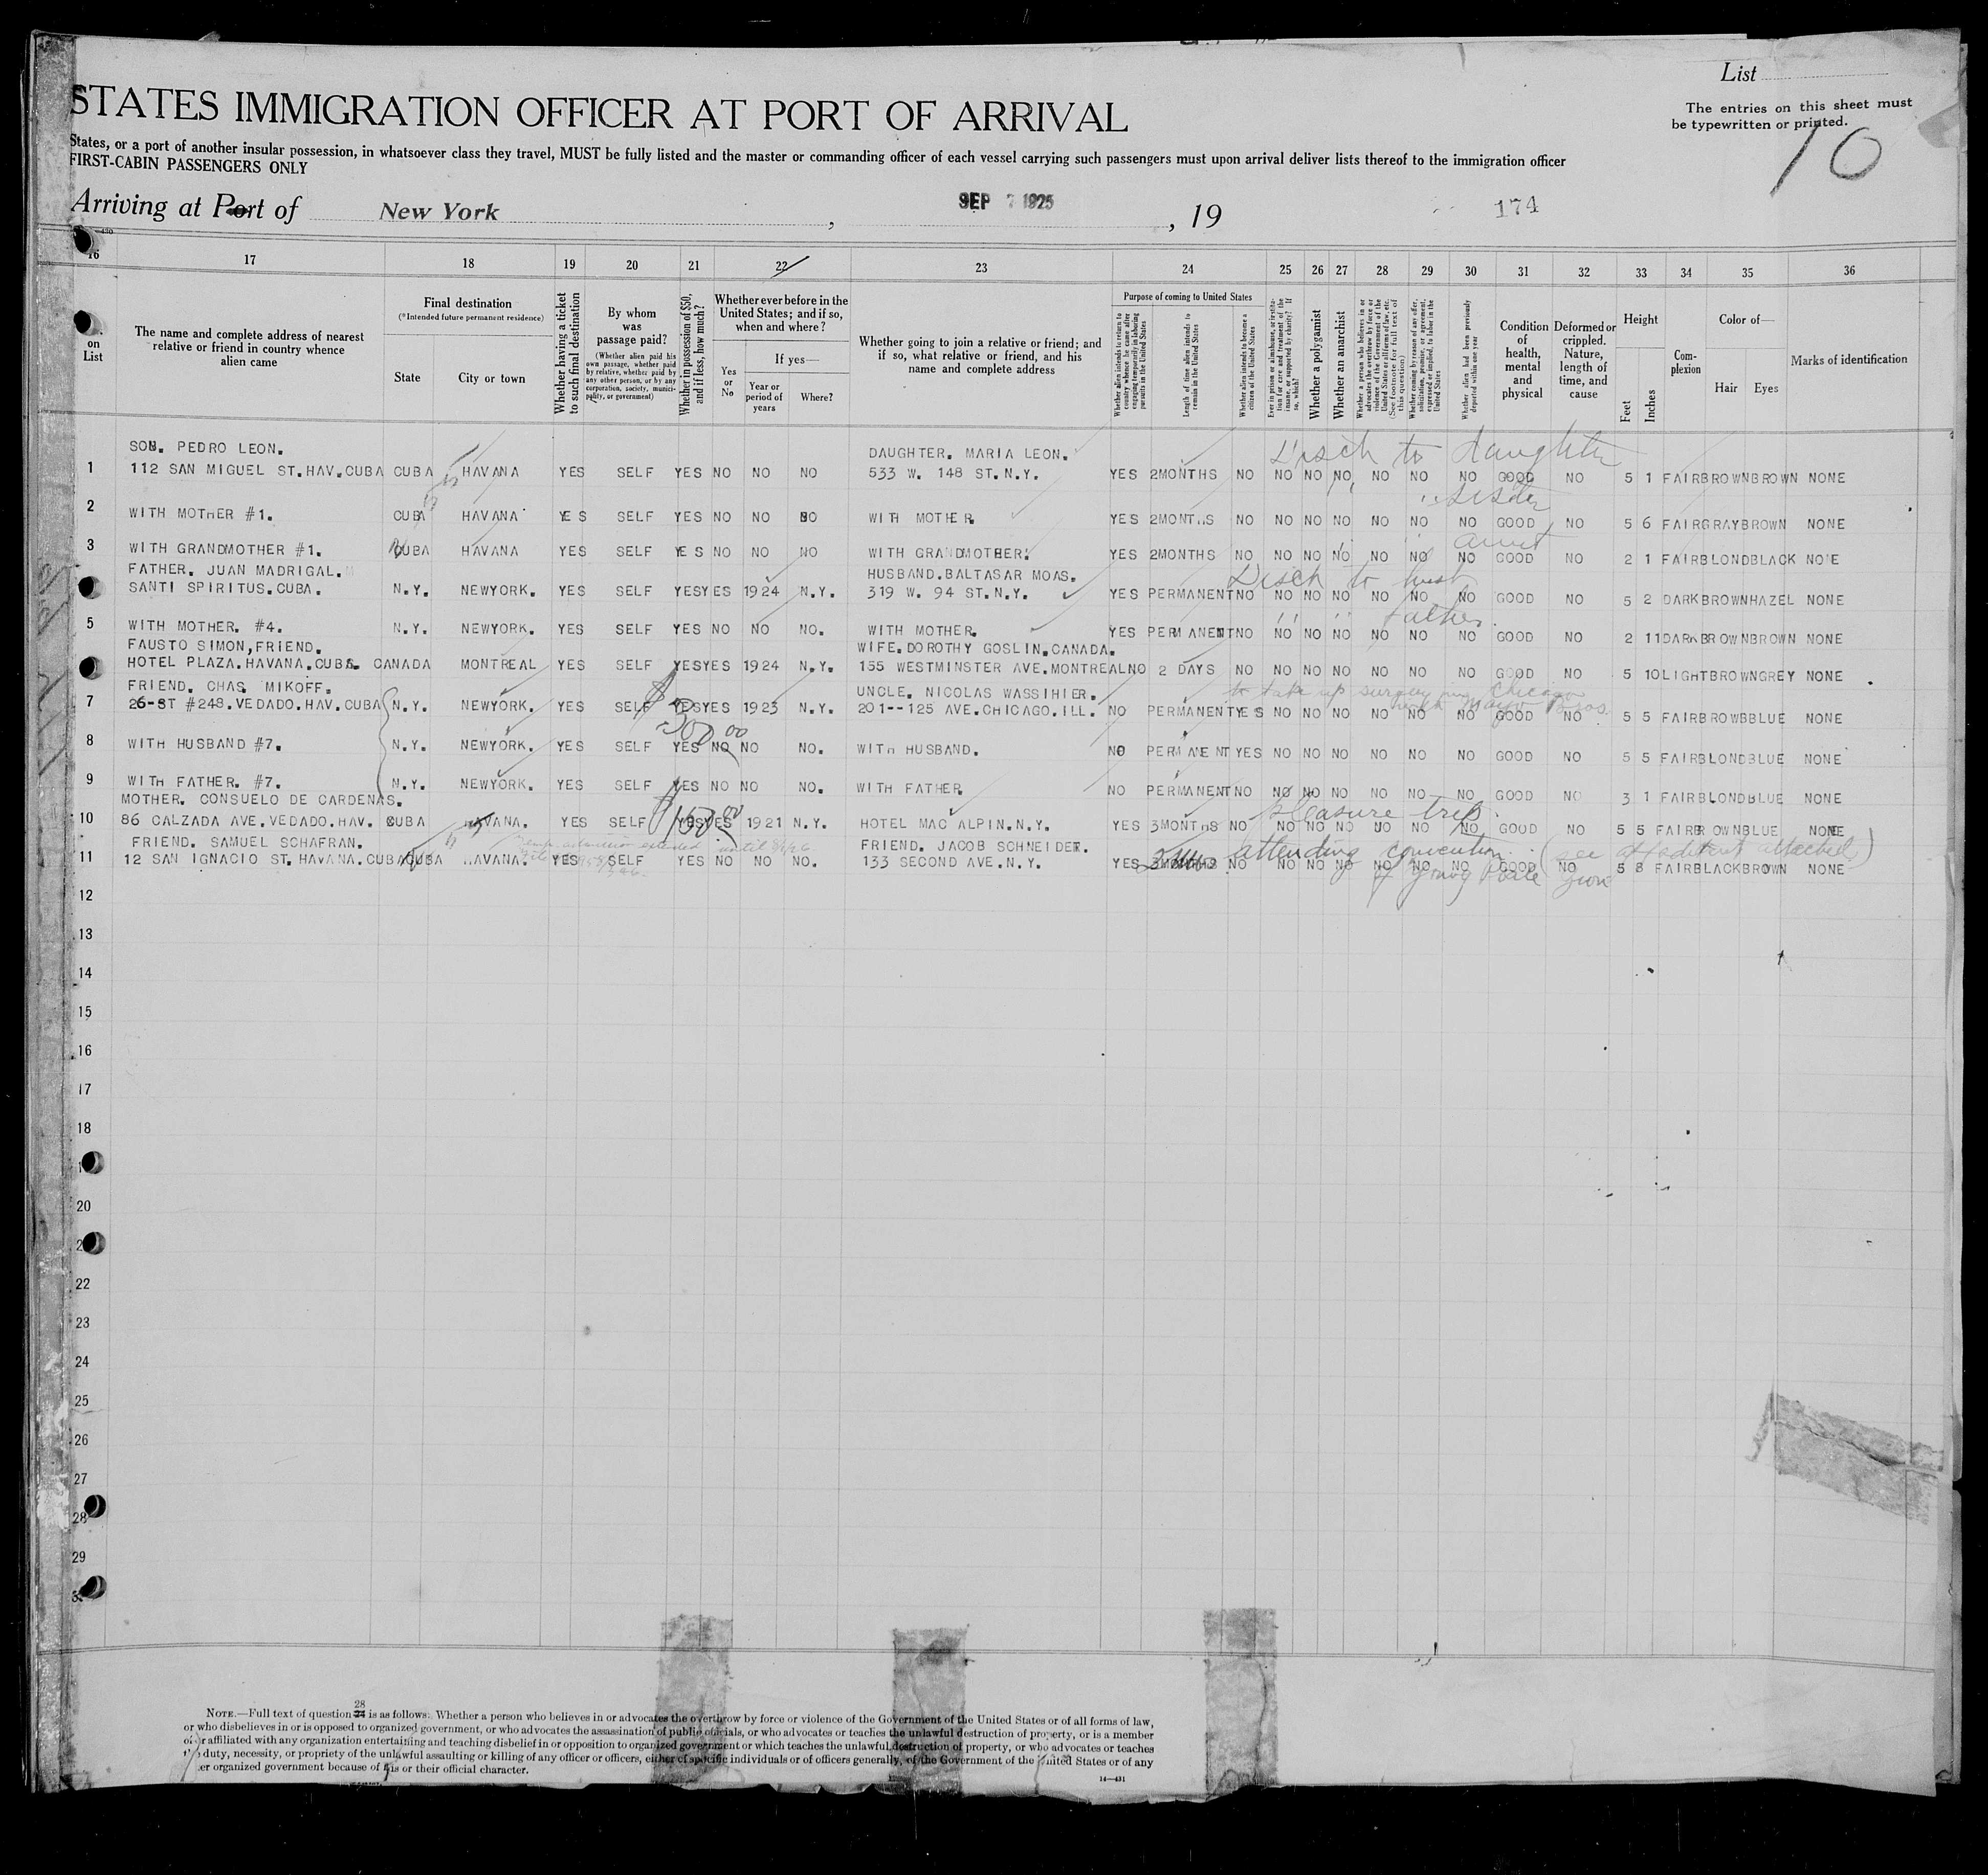 List
The entries on this sheet must
be typewritten or printed.
10
STATES IMMIGRATION OFFICER AT PORT OF ARRIVAL
States, or a port of another insular possession, in whatsoever class they travel, MUST be fully listed and the master or commanding officer of each vessel carrying such passengers must upon arrival deliver lists thereof to the immigration officer
FIRST-CABIN PASSENGERS ONLY
Arriving at Port of New York, SEP 7 1925, 19
174
16 17 18 19 20 21 22 23 24 25 26 27 28 29 30 31 32 33 34 35 36
on List
The name and complete address of nearest relative or friend in country whence alien came
Final destination
(*Intended future permanent residence)
State
City or town
Whether having a ticket to such final destination
By whom was passage paid?
(Whether alien paid his own passage, whether paid by relative, whether paid by any other person, or by any corporation, society, municipality, or government)
Whether in possession of $50, and if less, how much?
Whether ever before in the United States; and if so, when and where?
Yes or No
If yes—
Year or period of years
Where?
Whether going to join a relative or friend; and if so, what relative or friend, and his name and complete address
Purpose of coming to United States
Whether alien intends to return to country whence he came after engaging temporarily in laboring pursuits in the United States
Length of time alien intends to remain in the United States
Whether alien intends to become a citizen of the United States
Ever in prison or almshouse, or institution for care and treatment of the insane, or supported by charity? If so, which?
Whether a polygamist
Whether an anarchist
Whether a person who believes in or advocates the overthrow by force or violence of the Government of the United States or all forms of law, etc. (See footnote for full text of this question)
Whether coming by reason of any offer, solicitation, promise, or agreement, expressed or implied, to labor in the United States
Whether alien had been previously deported within one year
Condition of health, mental and physical
Deformed or crippled. Nature, length of time, and cause
Height
Feet
Inches
Complexion
Color of—
Hair Eyes
Marks of identification
SON. PEDRO LEON. DAUGHTER. MARIA LEON. Disch to daughter
1 112 SAN MIGUEL ST.HAV.CUBA CUBA HAVANA YES SELF YES NO NO NO 533 W. 148 ST.N.Y. YES 2MONTHS NO NO NO NO NO NO NO GOOD NO 5 1 FAIR BROWN BROWN NONE
" sister
2 WITH MOTHER #1. CUBA HAVANA YES SELF YES NO NO NO WITH MOTHER. YES 2MONTHS NO NO NO NO NO NO NO GOOD NO 5 6 FAIR GRAY BROWN NONE
" " aunt
3 WITH GRANDMOTHER #1. CUBA HAVANA YES SELF YES NO NO NO WITH GRANDMOTHER. YES 2MONTHS NO NO NO NO NO NO NO GOOD NO 2 1 FAIR BLOND BLACK NONE
FATHER. JUAN MADRIGAL. HUSBAND.BALTASAR MOAS. Disch to husb
SANTI SPIRITUS.CUBA. N.Y. NEWYORK. YES SELF YES YES 1924 N.Y. 319 W. 94 ST.N.Y. YES PERMANENT NO NO NO NO NO NO NO GOOD NO 5 2 DARK BROWN HAZEL NONE
" " father.
5 WITH MOTHER. #4. N.Y. NEWYORK. YES SELF YES NO NO NO. WITH MOTHER. YES PERMANENT NO NO NO NO NO NO NO GOOD NO 2 11 DARK BROWN BROWN NONE
FAUSTO SIMON,FRIEND. WIFE.DOROTHY GOSLIN.CANADA.
HOTEL PLAZA.HAVANA.CUBA. CANADA MONTREAL YES SELF YES YES 1924 N.Y. 155 WESTMINSTER AVE.MONTREAL NO 2 DAYS NO NO NO NO NO NO NO GOOD NO 5 10 LIGHT BROWN GREY NONE
FRIEND. CHAS. MIKOFF. UNCLE. NICOLAS WASSIHIER. to take up surgery in Chicago
with Mayo Bros.
7 26-ST #248.VEDADO.HAV.CUBA N.Y. NEWYORK. YES SELF YES YES 1923 N.Y. 201--125 AVE.CHICAGO.ILL. NO PERMANENT YES NO NO NO NO NO NO GOOD NO 5 5 FAIR BROWB BLUE NONE
$300.00
8 WITH HUSBAND #7. N.Y. NEWYORK. YES SELF YES NO NO NO. WITH HUSBAND. NO PERMANENT YES NO NO NO NO NO NO GOOD NO 5 5 FAIR BLOND BLUE NONE
9 WITH FATHER. #7. N.Y. NEWYORK. YES SELF YES NO NO NO. WITH FATHER. NO PERMANENT NO NO NO NO NO NO NO GOOD NO 3 1 FAIR BLOND BLUE NONE
MOTHER. CONSUELO DE CARDENAS. $150.00 pleasure trip.
10 86 CALZADA AVE.VEDADO.HAV. CUBA HAVANA. YES SELF YES YES 1921 N.Y. HOTEL MAC ALPIN.N.Y. YES 3MONTHS NO NO NO NO NO NO NO GOOD NO 5 5 FAIR BROWN BLUE NONE
FRIEND. SAMUEL SCHAFRAN. FRIEND. JACOB SCHNEIDER. attending convention (see affidavit attached)
of Young Poale Zion
11 12 SAN IGNACIO ST.HAVANA.CUBA CUBA HAVANA. YES SELF YES NO NO NO. 133 SECOND AVE.N.Y. YES 3MONTHS NO NO NO NO NO NO NO GOOD NO 5 8 FAIR BLACK BROWN NONE
12
13
14
15
16
17
18
20
22
23
24
25
26
27
28
29
NOTE.—Full text of question 28 is as follows: Whether a person who believes in or advocates the overthrow by force or violence of the Government of the United States or of all forms of law,
or who disbelieves in or is opposed to organized government, or who advocates the assassination of public officials, or who advocates or teaches the unlawful destruction of property, or is a member
of or affiliated with any organization entertaining and teaching disbelief in or opposition to organized government or which teaches the unlawful destruction of property, or who advocates or teaches
duty, necessity, or propriety of the unlawful assaulting or killing of any officer or officers, either of specific individuals or of officers generally, of the Government of the United States or of any
er organized government because of his or their official character.
14—431